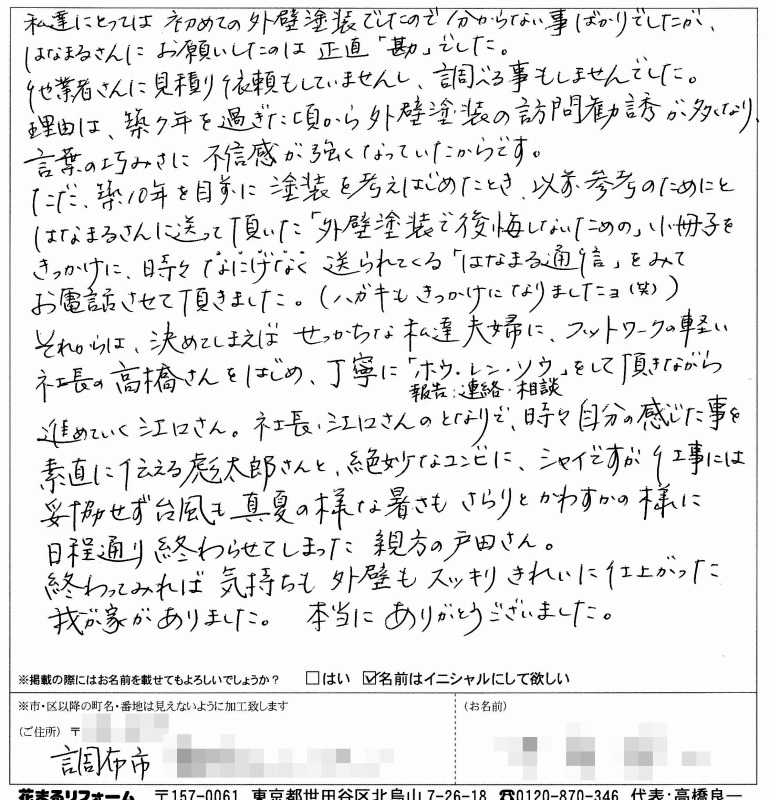 私達にとっては 初めての外壁塗装でしたので分からない事ばかりでしたが、
はなまるさんに お願いしたのは 正直「勘」でした。
他業者さんに見積り依頼もしていませんし、調べる事もしませんでした。
理由は、築7年を過ぎた頃から外壁塗装の訪問勧誘が多くなり、
言葉の巧みさに 不信感が強くなっていたからです。
ただ、築10年を目前に 塗装を考えはじめたとき、以前 参考のためにと
はなまるさんに送って頂いた「外壁塗装で後悔しないための」小冊子を
きっかけに、時々 なにげなく 送られてくる「はなまる通信」をみて
お電話させて頂きました。(ハガキも きっかけになりましたョ(笑))
それからは、決めてしまえば せっかちな 私達夫婦に、フットワークの軽い
社長の 高橋さんをはじめ、丁寧に「ホウ・レン・ソウ」をして頂きながら
報告・連絡・相談
進めていく江口さん。社長・江口さんのとなりで、時々自分の感じた事を
素直に伝える彪太郎さんと、絶妙なコンビに、シャイですが 仕事には
妥協せず台風も真夏の様な暑さも さらりと かわすかの様に
日程通り 終わらせてしまった 親方の戸田さん。
終わってみれば 気持ちも 外壁も スッキリ きれいに仕上がった
我が家がありました。 本当に ありがとうございました。
※掲載の際にはお名前を載せてもよろしいでしょうか? □はい ☑名前はイニシャルにして欲しい
※市・区以降の町名・番地は見えないように加工致します
(お名前)
(ご住所) 〒
調布市
花まるリフォーム 〒157-0061 東京都世田谷区北烏山 7-26-18 ☎0120-870-346 代表:高橋良一